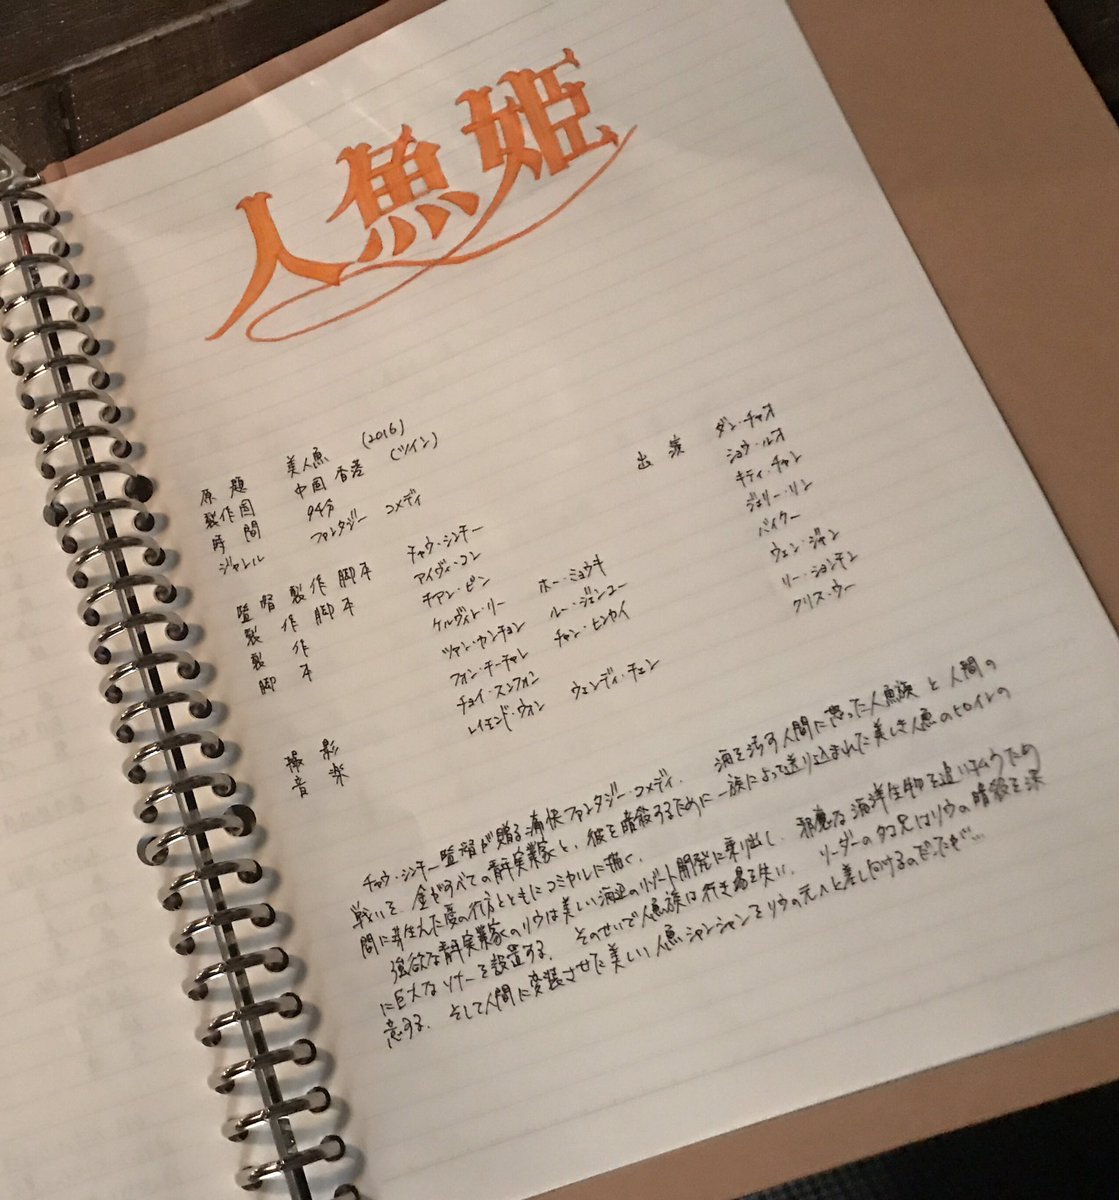 人魚姫
原題 美人魚 (2016)
製作国 中国 香港 (ツイン)
時間 94分
ジャンル ファンタジー コメディ
監督 製作 脚本 チャウ・シンチー
製作 脚本 アイヴィ・コン
製作 チアン・ピン
脚本 ケルヴィン・リー ホー・ミョウキ
ツァン・カンチョン ルー・ジェンユー
フォン・チーチャン チャン・ヒンカイ
撮影 チョイ・スンフォン
音楽 レイモンド・ウォン ウェンディ・チェン
出演 ダン・チャオ
ショウ・ルオ
キティ・チャン
ジェリー・リン
バイクー
ウェン・ジャン
リー・ションチン
クリス・ウー
チャウ・シンチー監督が贈る痛快ファンタジー・コメディ. 海を汚す人間に怒った人魚族と人間の
戦いを、金がすべての青年実業家と、彼を暗殺するために一族によって送り込まれた美しき人魚のヒロインの
間に芽生えた愛の行方とともにコミカルに描く.
強欲な青年実業家のリウは美しい海辺のリゾート開発に乗り出し、邪魔な海洋生物を追い払うため
に巨大なソナーを設置する. そのせいで人魚族は行き場を失い、リーダーのタコ兄はリウの暗殺を決
意する. そして人間に変装させた美しい人魚シャンシャンをリウの元へと差し向けるのだったが…